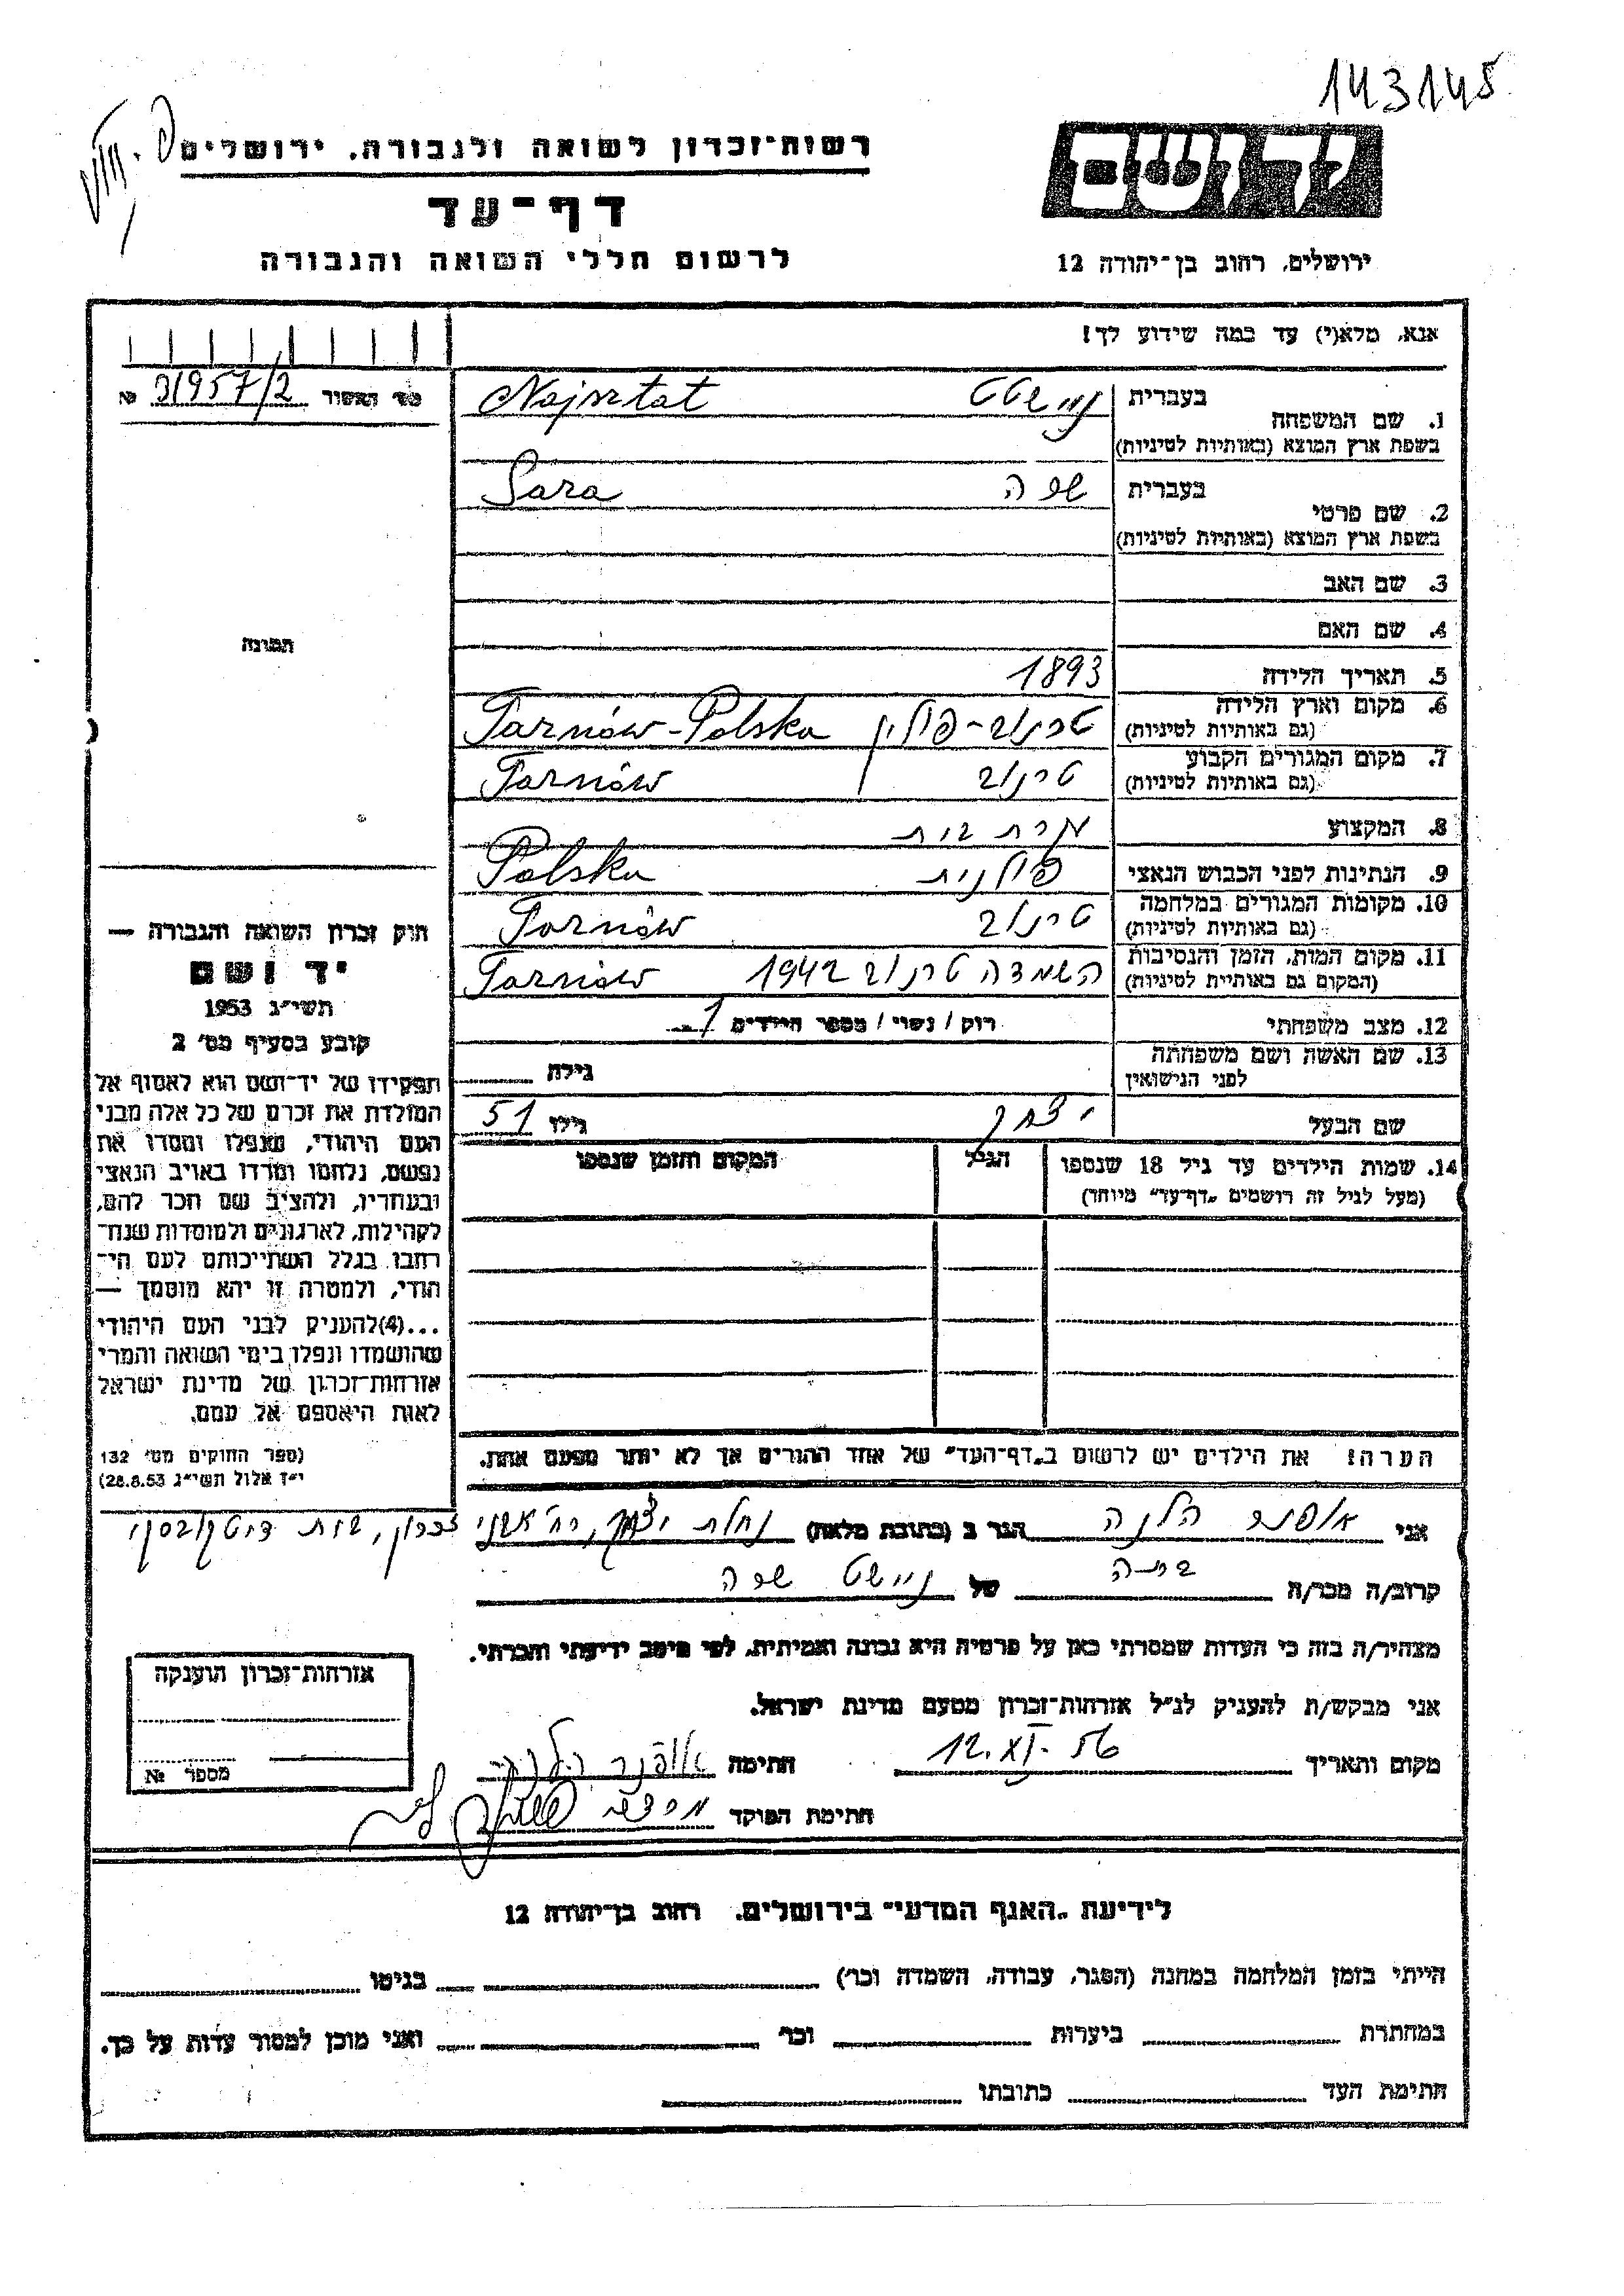 143145
רשות־זכרון לשואה ולגבורה, ירושלים
דף־עד
לרשום חללי השואה והגבורה
ירושלים, רחוב בן־יהודה 12
אנא, מלא(י) עד כמה שידוע לך!
№ 31957/2
1. שם המשפחה בעברית נײשטט Najsztat
בשפת ארץ המוצא (באותיות לטיניות)
2. שם פרטי בעברית שרה Sara
בשפת ארץ המוצא (באותיות לטיניות)
3. שם האב
4. שם האם
5. תאריך הלידה 1893
6. מקום וארץ הלידה טרנוב-פולין Tarnów-Polska
(גם באותיות לטיניות)
7. מקום המגורים הקבוע טרנוב Tarnów
(גם באותיות לטיניות)
8. המקצוע עקרת בית
9. הנתינות לפני הכבוש הנאצי פולנית Polska
10. מקומות המגורים במלחמה טרנוב Tarnów
(גם באותיות לטיניות)
11. מקום המות, הזמן והנסיבות השמדה טרנוב 1942 Tarnów
(המקום גם באותיות לטיניות)
12. מצב משפחתי רוק / נשוי / מספר הילדים 1
13. שם האשה ושם משפחתה גילה
לפני הנישואין
שם הבעל יצחק גילו 51
14. שמות הילדים עד גיל 18 שנספו הגיל המקום והזמן שנספו
(מעל לגיל זה רושמים „דף־עד" מיוחד)
הערה! את הילדים יש לרשום ב„דף־העד" של אחד ההורים אך לא יותר מפעם אחת.
תמונה
חוק זכרון השואה והגבורה —
יד ושם
תשי״ג 1953
קובע בסעיף מס׳ 2
תפקידו של יד־ושם הוא לאסוף אל
המולדת את זכרם של כל אלה מבני
העם היהודי, שנפלו ומסרו את
נפשם, נלחמו ומרדו באויב הנאצי
ובעוזריו, ולהציב שם וזכר להם,
לקהילות, לארגונים ולמוסדות שנח־
רבו בגלל השתייכותם לעם הי־
הודי, ולמטרה זו יהא מוסמך —
...(4)להעניק לבני העם היהודי
שהושמדו ונפלו בימי השואה והמרי
אזרחות־זכרון של מדינת ישראל
לאות היאספם אל עמם.
(ספר החוקים מס׳ 132
י״ז אלול תשי״ג 28.8.53)
אני אופנר הלנה הגר ב (כתובת מלאה) נחלת יצחק,
קרוב/ה מכר/ה בתה של ניישטט שרה
מצהיר/ה בזה כי העדות שמסרתי כאן על פרטיה היא נכונה ואמיתית, לפי מיטב ידיעתי והכרתי.
אני מבקש/ת להעניק לנ״ל אזרחות־זכרון מטעם מדינת ישראל.
מקום ותאריך 12.XI.56 חתימה אופנר הלנה
חתימת הפוקד
אזרחות־זכרון הוענקה
מספר №
לידיעת „האגף המדעי" בירושלים, רחוב בן־יהודה 12
הייתי בזמן המלחמה במחנה (הסגר, עבודה, השמדה וכר׳) בגיטו
במחתרת ביערות וכר׳ ואני מוכן למסור עדות על כך.
חתימת העד כתובתו